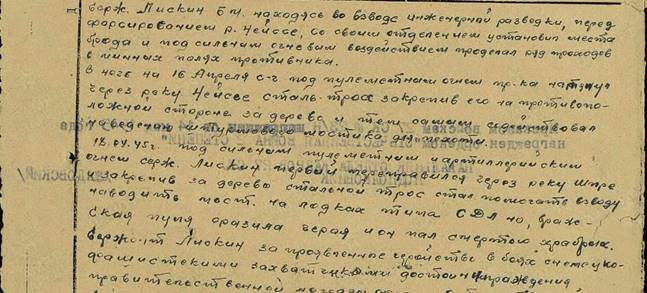 серж. Лискин Б.И. находясь во взводе инженерной разведки, перед
форсированием р. Нейссе, со своим отделением установил места
брода и под сильным огневым воздействием проделал ряд проходов
в минных полях противника.
В ночь на 16 Апреля с-г под пулеметным огнем пр-ка натянул
через реку Нейссе сталь-трос закрепив его на противопо-
ложной стороне за дерево и тем самым содействовал
наведению штурмового мостика для пехоты.
18.04.45г. под сильным пулеметным и артиллерийским
огнем серж. Лискин первый переправился через реку Шпре
и закрепив за дерево стальной трос стал помогать взводу
наводить мост. на лодках типа СДЛ но, враже-
ская пуля сразила героя и он пал смертью храбрых.
Сержант Лискин за проявленное геройство в боях с немецко-
фашистскими захватчиками достоин награждения
правительственной наградой